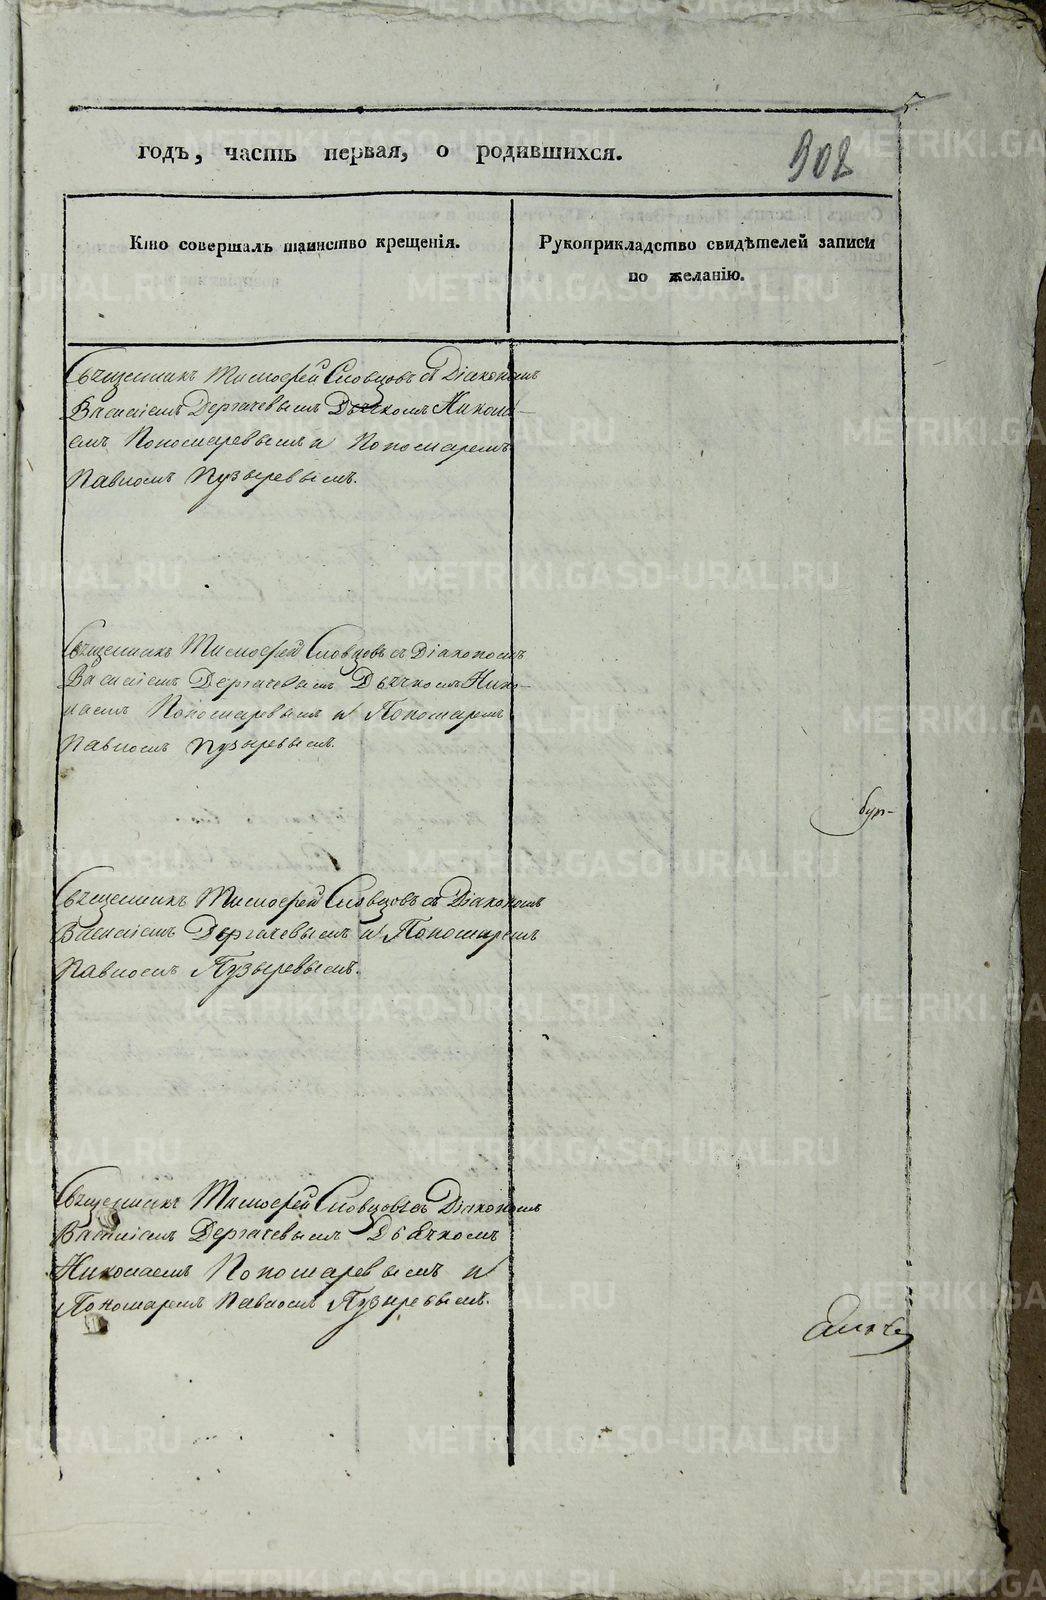 5.
годъ, часть первая, о родившихся.
908
Кто совершалъ таинство крещенія.
Рукоприкладство свидѣтелей записи
по желанію.
Священникъ Тимофей Словцовъ съ Діакономъ
Василіемъ Дергачевымъ Дьячкомъ Никола-
емъ Пономаревымъ и Пономаремъ
Павломъ Пузыревымъ.
Священникъ Тимофей Словцовъ съ Діакономъ
Василіемъ Дергачевымъ Дьячкомъ Нико-
лаемъ Пономаревымъ и Пономаремъ
Павломъ Пузыревымъ.
Священникъ Тимофей Словцовъ съ Діакономъ
Василіемъ Дергачевымъ и Пономаремъ
Павломъ Пузыревымъ.
Священникъ Тимофей Словцовъ съ Діакономъ
Василіемъ Дергачевымъ Дьячкомъ
Николаемъ Пономаревымъ и
Пономаремъ Павломъ Пузыревымъ.
METRIKI.GASO-URAL.RU